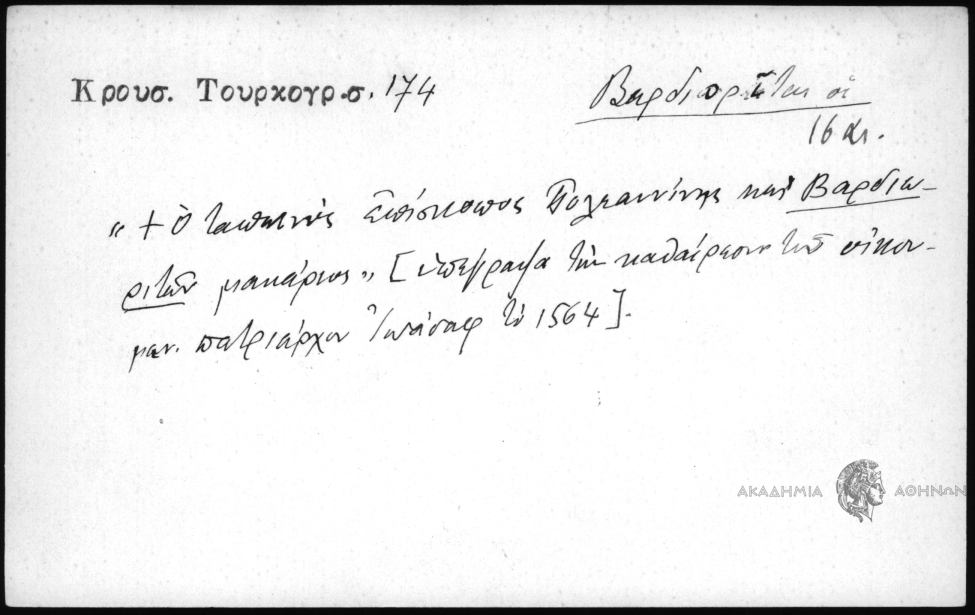 Κρουσ. Τουρκογρ.σ. 174
Βαρδιωρῖται οἱ
16 αι.
" + Ὁ ταπεινὸς ἐπίσκοπος Πολεαννίνης καὶ Βαρδιω-
ριτῶν μακάριος" [ὑπέγραψα τὴν καθαίρεσιν τοῦ οἰκου-
μεν. πατριάρχου Ἰωάσαφ τῷ 1564].
ΑΚΑΔΗΜΙΑ ΑΘΗΝΩΝ